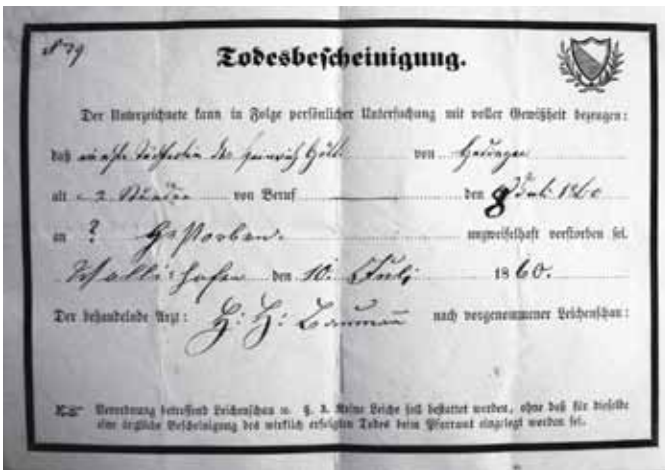 Nº 79
Todesbescheinigung.
Der Unterzeichnete kann in Folge persönlicher Untersuchung mit voller Gewißheit bezeugen:
daß des Heinrich von Hedingen
alt 2 Stunden von Beruf den 8 Juli 1860
an ? Gestorben. unzweifelhaft verstorben sei.
den 10. Juli 1860.
Der behandelnde Arzt: H: H: Baumann nach vorgenommener Leichenschau:
Verordnung betreffend Leichenschau u. §. 3. Keine Leiche soll bestattet werden, ohne daß für dieselbe
eine ärztliche Bescheinigung des wirklich erfolgten Todes beim Pfarramt eingelegt worden sei.